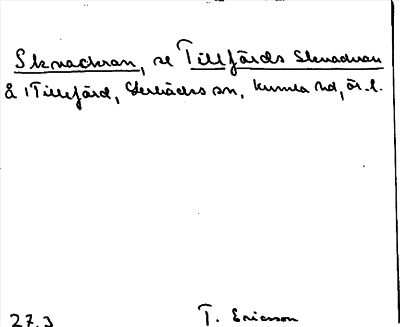 Sknackran, se Tillfärds Sknackran
å 1 Tillfärd, Lerbäcks sn, Kumla hd, Ör. l.
27.3 T. Ericsson